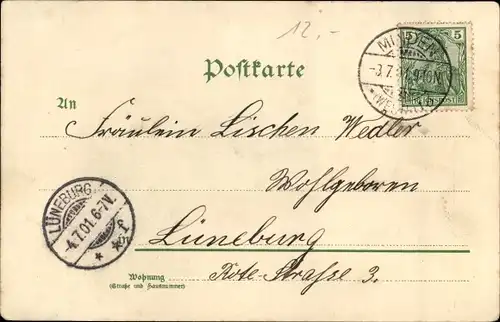 12.-
5 5
MINDEN
-3.7.01.
*(WESTF.)
Postkarte
An
Fräulein Lischen Wedler
Wohlgeboren
LÜNEBURG
-4.7.01.6-7V.
* *f
Lüneburg
Rote-Strasse 3.
Wohnung
(Straße und Hausnummer)